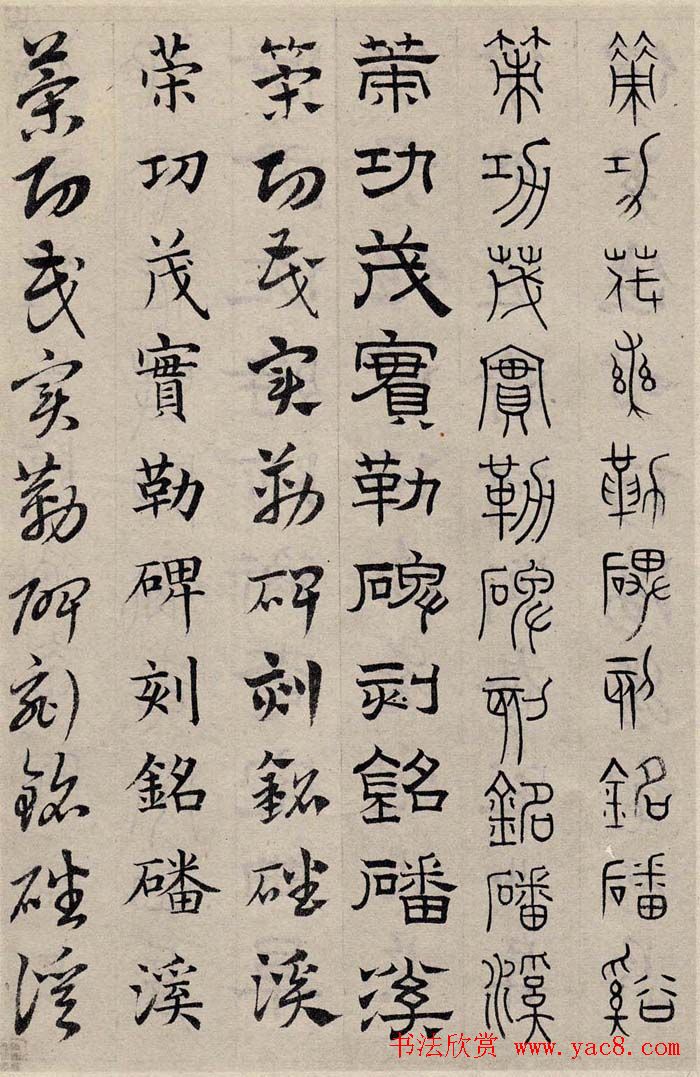 策功茂實勒碑刻銘磻谿
策功茂實勒碑刻銘磻溪
策功茂實勒碑刻銘磻溪
策功茂实勒碑刻銘磻溪
策功茂實勒碑刻銘磻溪
策功茂实勒碑刻銘磻溪
书法欣赏 www.yac8.com